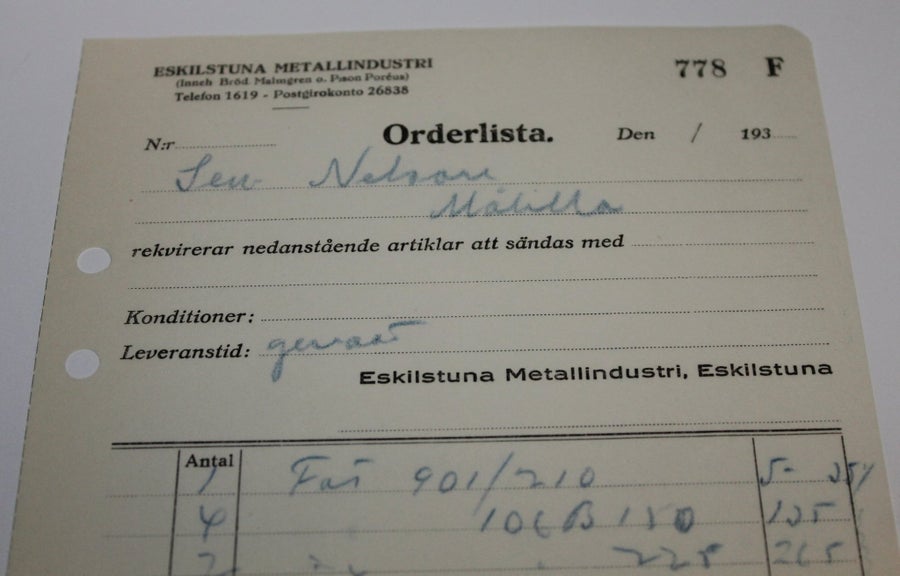 ESKILSTUNA METALLINDUSTRI
(Inneh. Bröd. Malmgren o. Pson Poréus)
Telefon 1619 - Postgirokonto 26838
778 F
N:r Orderlista. Den / 193
Nelson
Målilla
rekvirerar nedanstående artiklar att sändas med
Konditioner:
Leveranstid: genast
Eskilstuna Metallindustri, Eskilstuna
Antal
1 Fat 901/210 5-
4 106B 135
2 225 265